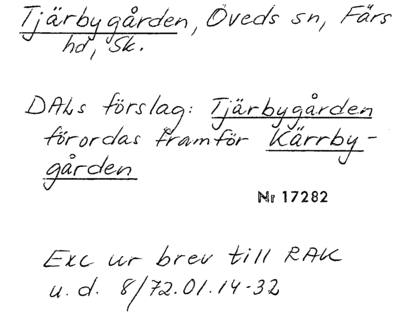 Tjärbygården, Öveds sn, Färs
hd, Sk.
DALs förslag: Tjärbygården
förordas framför Kärrby-
gården
Nr 17282
Exc ur brev till RAK
u.d. 8/72.01.14-32